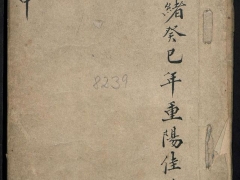 緒癸巳年重陽佳
8239